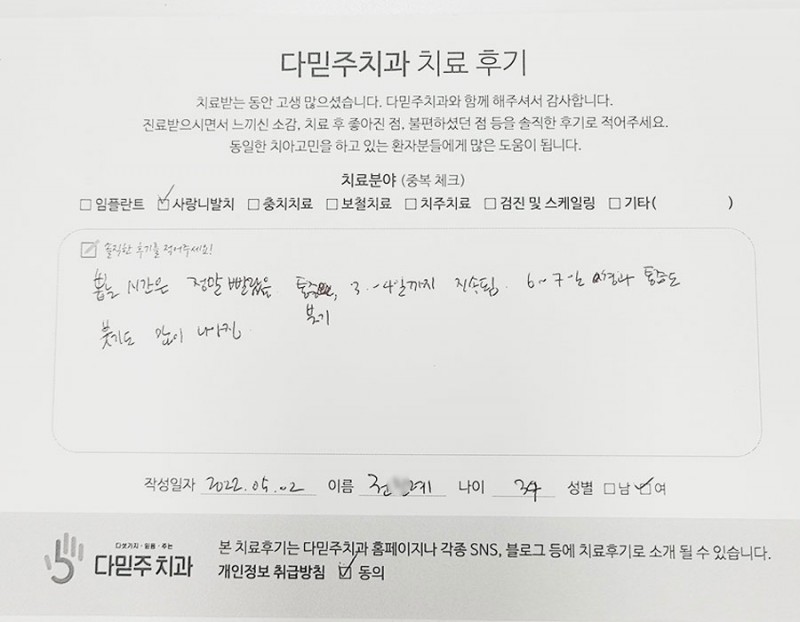 다믿주치과 치료 후기
치료받는 동안 고생 많으셨습니다. 다믿주치과와 함께 해주셔서 감사합니다.
진료받으시면서 느끼신 소감, 치료 후 좋아진 점, 불편하셨던 점 등을 솔직한 후기로 적어주세요.
동일한 치아고민을 하고 있는 환자분들에게 많은 도움이 됩니다.
치료분야 (중복 체크)
□ 임플란트 ☑ 사랑니발치 □ 충치치료 □ 보철치료 □ 치주치료 □ 검진 및 스케일링 □ 기타( )
솔직한 후기를 적어주세요!
뽑는 시간은 정말 빨랐음 통증, 3.~4일까지 지속됨. 6~7일 경과 통증도
붓기
붓기도 많이 나아짐.
작성일자 2022.05.02 이름 전 예 나이 34 성별 □남 ☑여
다섯가지·믿음·주는
다믿주치과
본 치료후기는 다믿주치과 홈페이지나 각종 SNS, 블로그 등에 치료후기로 소개 될 수 있습니다.
개인정보 취급방침 ☑ 동의